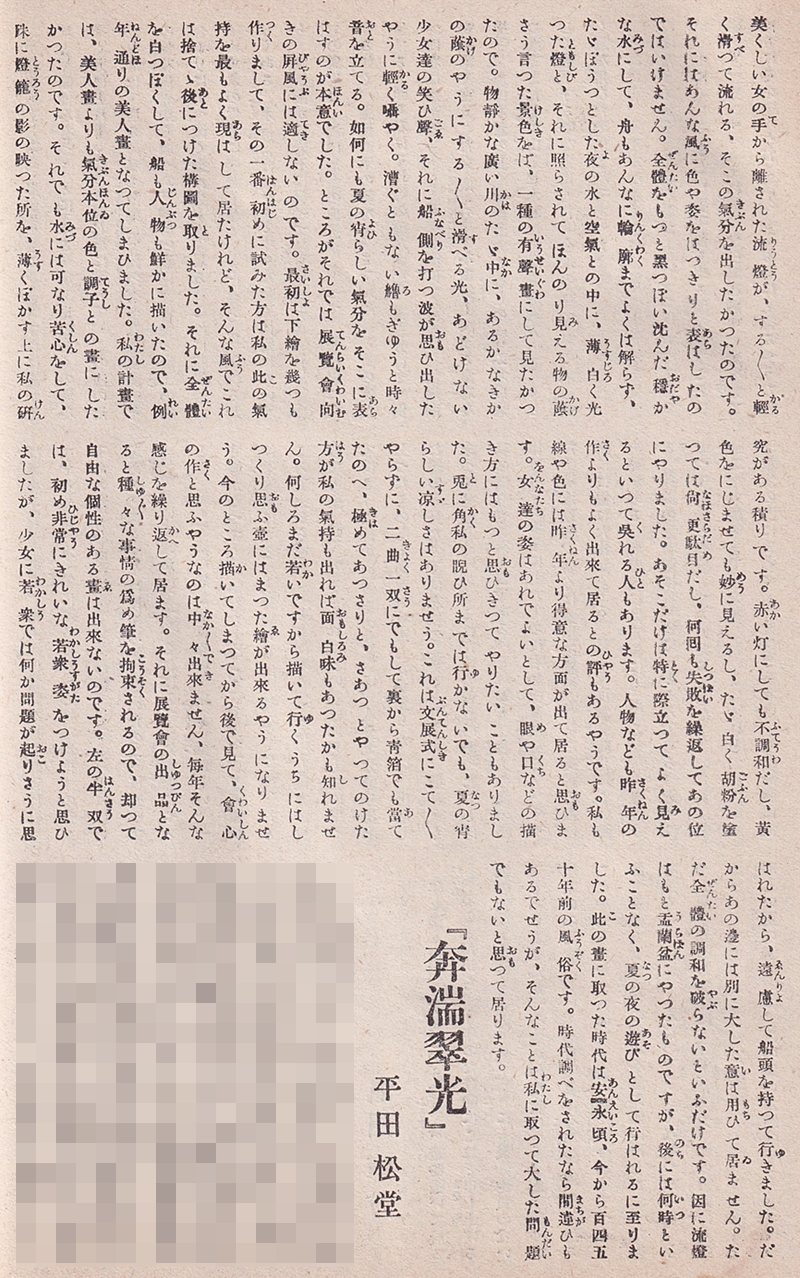 美くしい女の手から離された流燈が、する〱と輕
く滑つて流れる、そこの氣分を出したかつたのです。
それにはあんな風に色や姿をはつきりと表はしたの
ではいけません。全體をもつと黑つぽい沈んだ穩か
な水にして、舟もあんなに輪廓までよくは解らず、
たゞぼうつとした夜の水と空氣との中に、薄白く光
つた燈と、それに照らされてほんのり見える物の蔭
さう言つた景色をば、一種の有聲畫にして見たかつ
たので。物靜かな廣い川のたゞ中に、あるかなきか
の蔭のやうにする〱と滑べる光、あどけない
少女達の笑ひ聲、それに船側を打つ波が思ひ出した
やうに輕く囁やく。漕ぐともない艪もぎゆうと時々
音を立てる。如何にも夏の宵らしい氣分をそこに表
はすのが本意でした。ところがそれでは展覽會向
きの屏風には適しないのです。最初は下繪を幾つも
作りまして、その一番初めに試みた方は私の此の氣
持を最もよく現はして居たけれど、そんな風でこれ
は捨てゝ後につけた構圖を取りました。それに全體
を白つぽくして、船も人物も鮮かに描いたので、例
年通りの美人畫となつてしまひました。私の計畫で
は、美人畫よりも氣分本位の色と調子との畫にした
かつたのです。それでも水には可なり苦心をして、
殊に燈籠の影の映つた所を、薄くぼかす上に私の硏
究がある積りです。赤い灯にしても不調和だし、黃
色をにじませても妙に見えるし、たゞ白く胡粉を塗
つては尙更駄目だし、何囘も失敗を繰返してあの位
にやりました。あそこだけは特に際立つてよく見え
るといつて吳れる人もあります。人物なども昨年の
作よりもよく出來て居るとの評もあるやうです。私も
線や色には昨年より得意な方面が出て居ると思ひま
す。女達の姿はあれでよいとして、眼や口などの描
き方にはもつと思ひきつてやりたいこともありまし
た。兎に角私の睨ひ所までは行かないでも、夏の宵
らしい凉しさはありませう。これは文展式にこて〱
やらずに、二曲一双にでもして裏から靑箔でも當て
たのへ、極めてあつさりと、さあつとやつてのけた
方が私の氣持も出れば面白味もあつたかも知れませ
ん。何しろまだ若いですから描いて行くうちにはし
つくり思ふ壺にはまつた繪が出來るやうになりませ
う。今のところ描いてしまつてから後で見て、會心
の作と思ふやうなのは中々出來ません、每年そんな
感じを繰り返して居ます。それに展覽會の出品とな
ると種々な事情の爲め筆を拘束されるので、却つて
自由な個性のある畫は出來ないのです。左の半双で
は、初め非常にきれいな若衆姿をつけようと思ひ
ましたが、少女に若衆では何か問題が起りさうに思
はれたから、遠慮して船頭を持つて行きました。だ
からあの邊には別に大した意は用ひて居ません。た
だ全體の調和を破らないといふだけです。因に流燈
はもと盂蘭盆にやつたものですが、後には何時とい
ふことなく、夏の夜の遊びとして行はれるに至りま
した。此の畫に取つた時代は安永頃、今から百四五
十年前の風俗です。時代調べをされたなら間違ひも
あるでせうが、そんなことは私に取つて大した問題
でもないと思つて居ります。
『奔湍翠光』
平田松堂